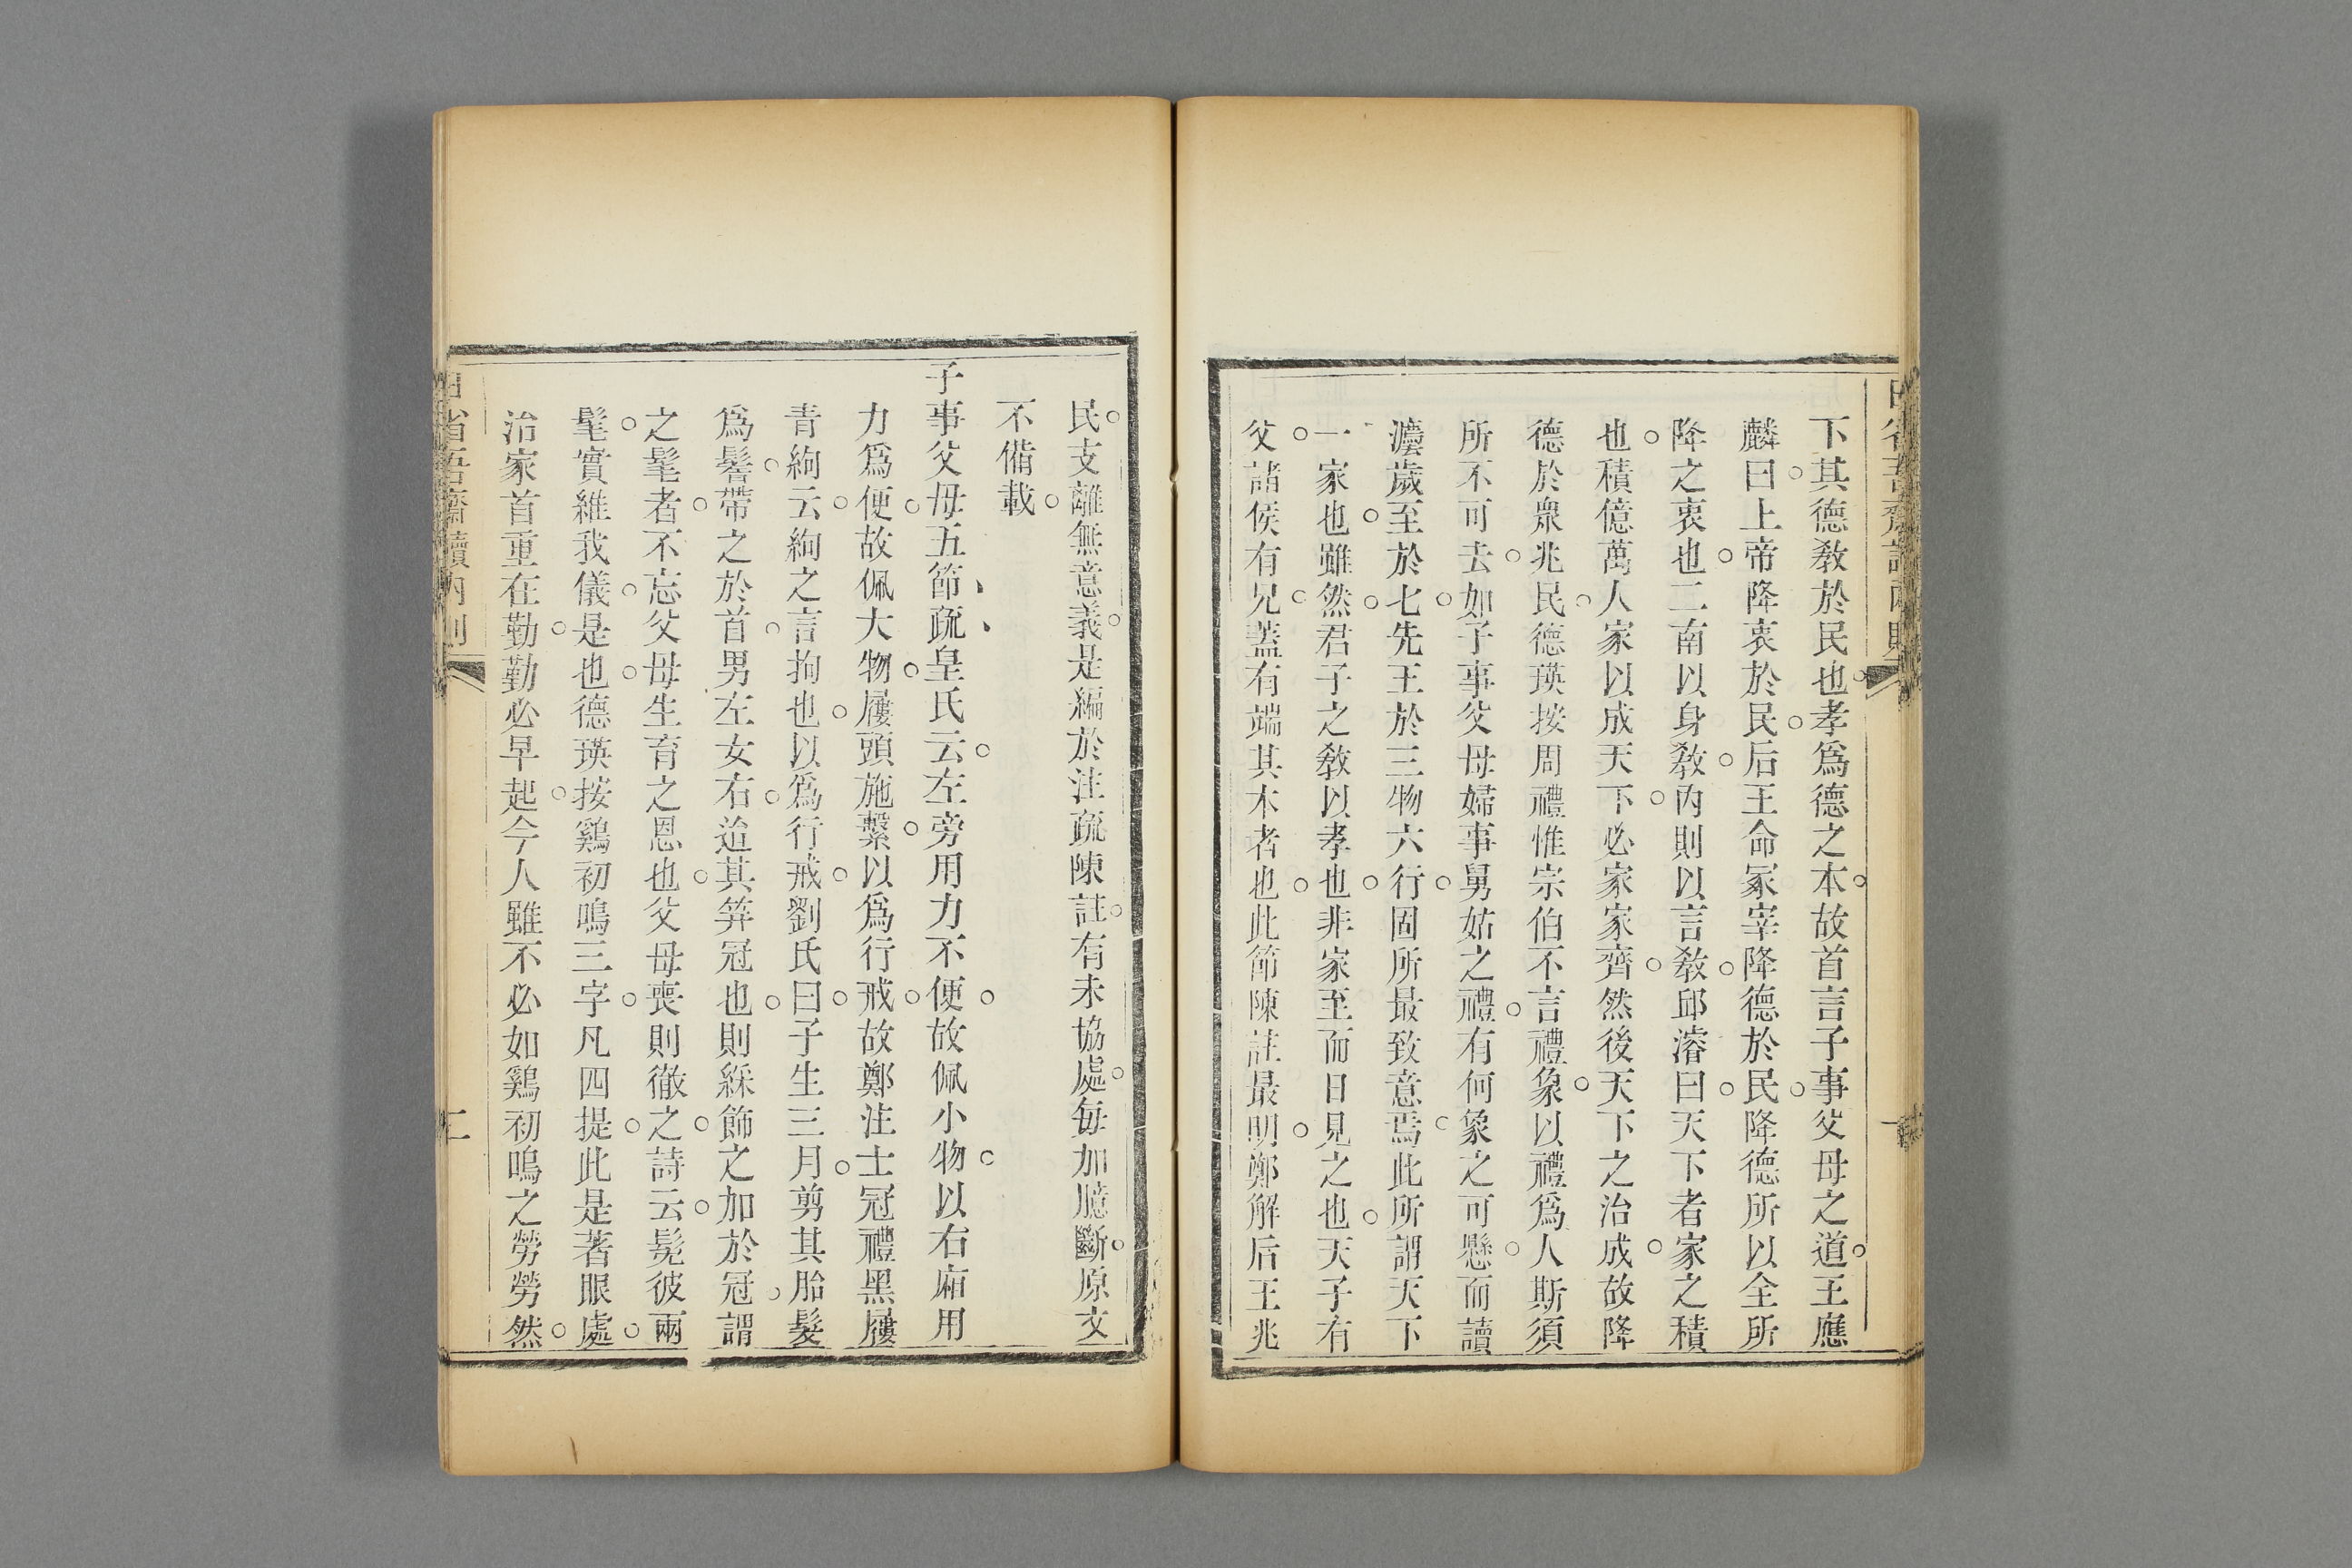 下其德敎於民也孝爲德之本故首言子事父母之道王應
麟曰上帝降衷於民后王命冢宰降德於民降德所以全所
降之衷也二南以身敎內則以言敎邱濬曰天下者家之積
也積億萬人家以成天下必家家齊然後天下之治成故降
德於衆兆民德瑛按周禮惟宗伯不言禮象以禮爲人斯須
所不可去如子事父母婦事舅姑之禮有何象之可懸而讀
灋歲至於七先王於三物六行固所最致意焉此所謂天下
一家也雖然君子之敎以孝也非家至而日見之也天子有
父諸侯有兄蓋有端其本者也此節陳註最明鄭解后王兆
民支離無意義是編於注疏陳註有未協處每加臆斷原文
不備載
子事父母五節疏皇氏云左旁用力不便故佩小物以右廂用
力爲便故佩大物屨頭施繫以爲行戒故鄭注士冠禮黑屨
青絇云絇之言拘也以爲行戒劉氏曰子生三月剪其胎髮
爲髻帶之於首男左女右迨其笄冠也則綵飾之加於冠謂
之髦者不忘父母生育之恩也父母喪則徹之詩云髧彼兩
髦實維我儀是也德瑛按鷄初鳴三字凡四提此是著眼處
治家首重在勤勤必早起今人雖不必如鷄初鳴之勞勞然
日省吾齋讀內則
二